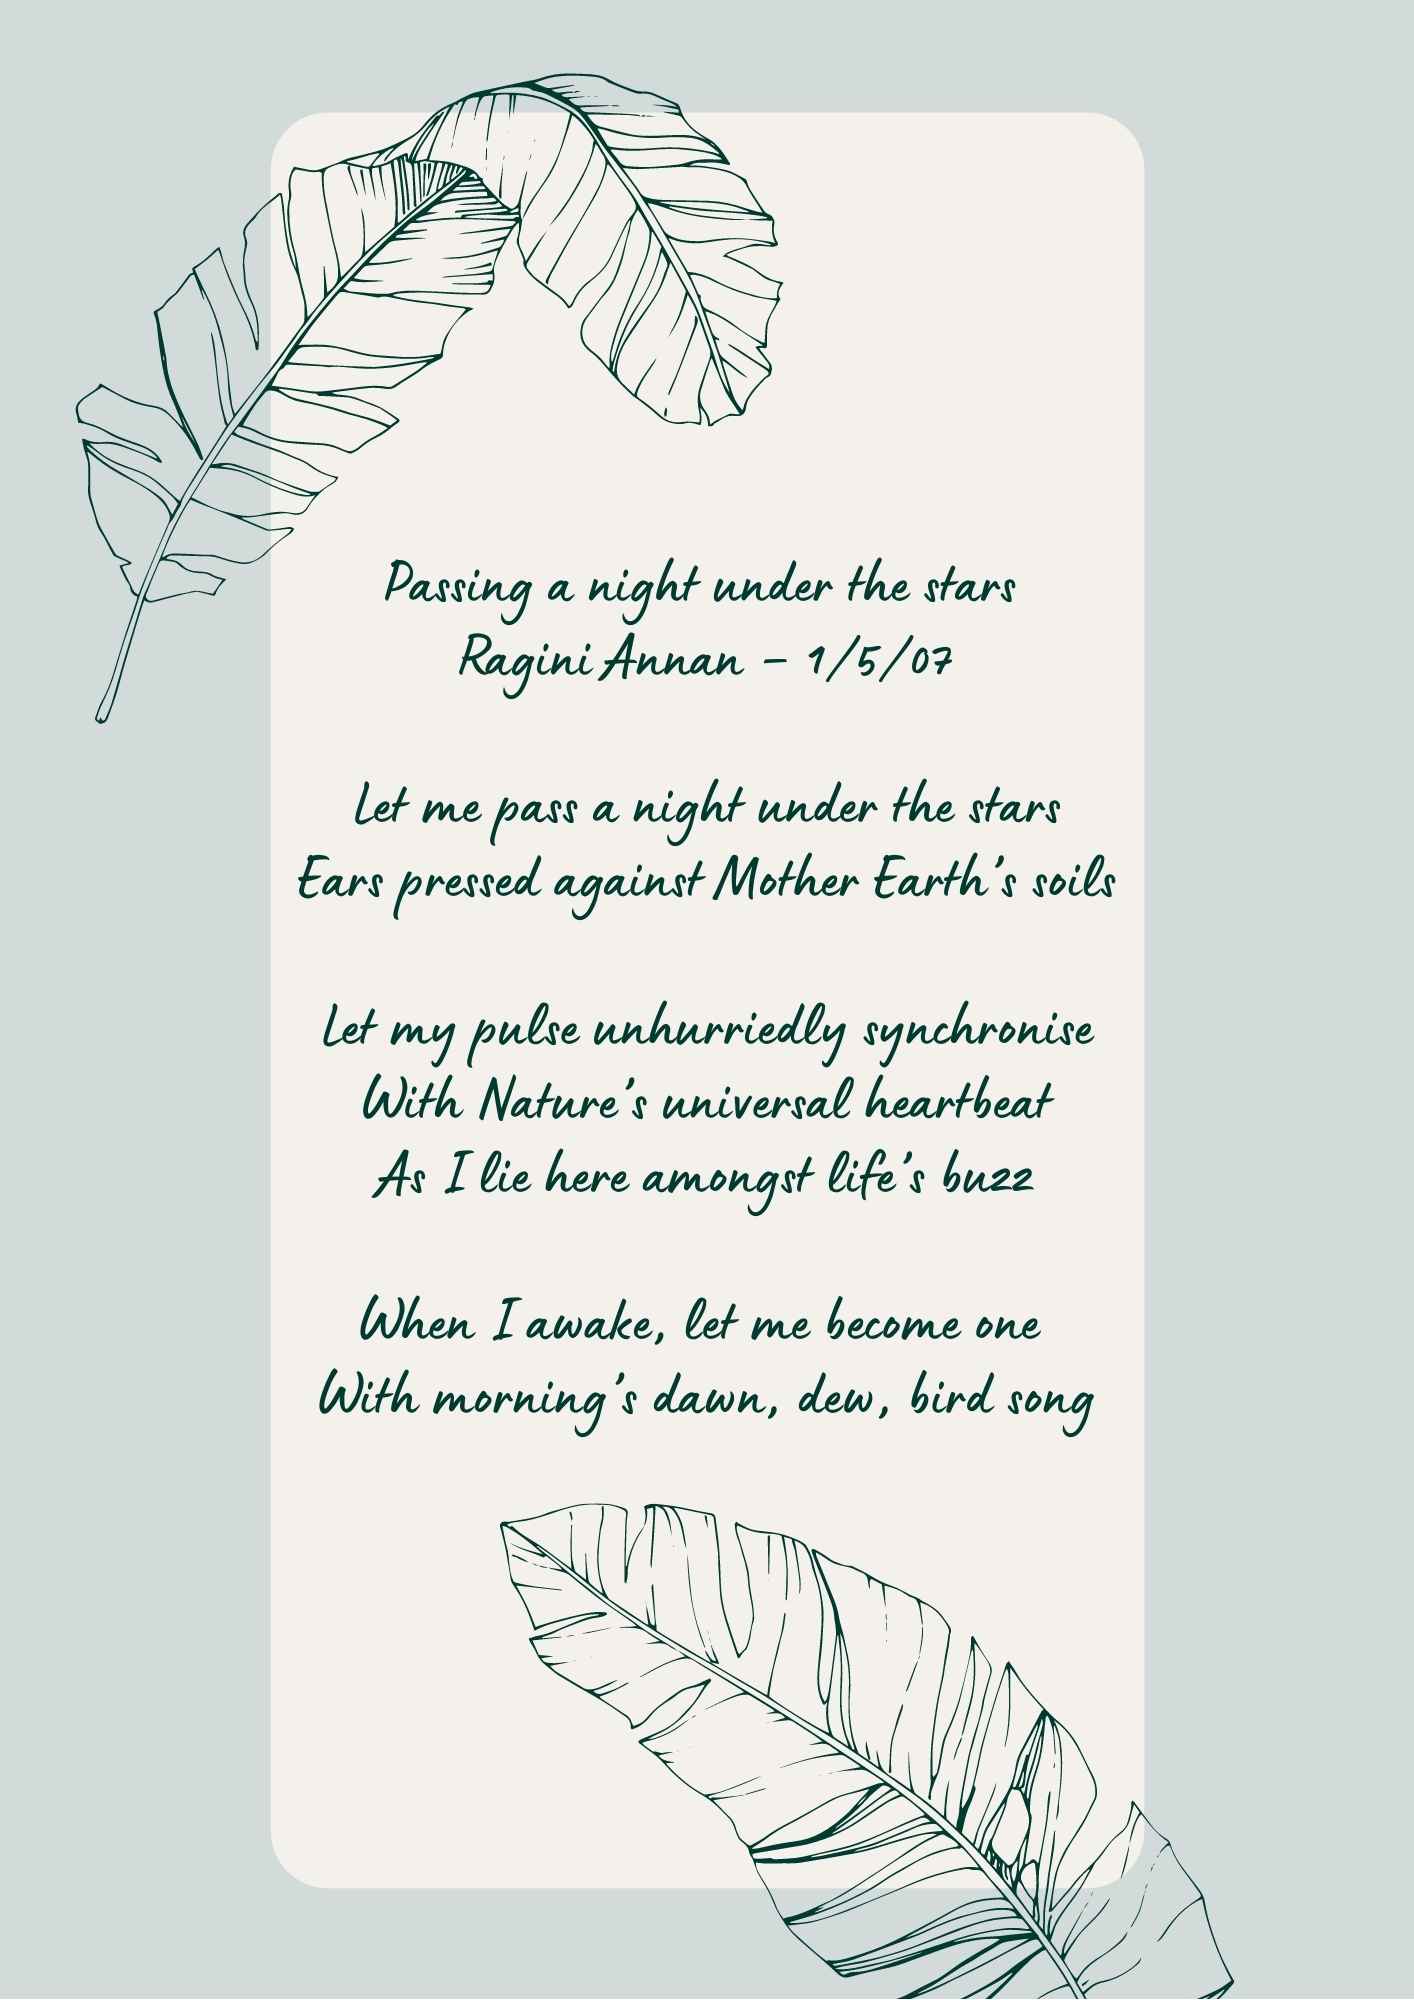 Passing a night under the stars
Ragini Annan – 1/5/07
Let me pass a night under the stars
Ears pressed against Mother Earth's soils
Let my pulse unhurriedly synchronise
With Nature's universal heartbeat
As I lie here amongst life's buzz
When I awake, let me become one
With morning's dawn, dew, bird song